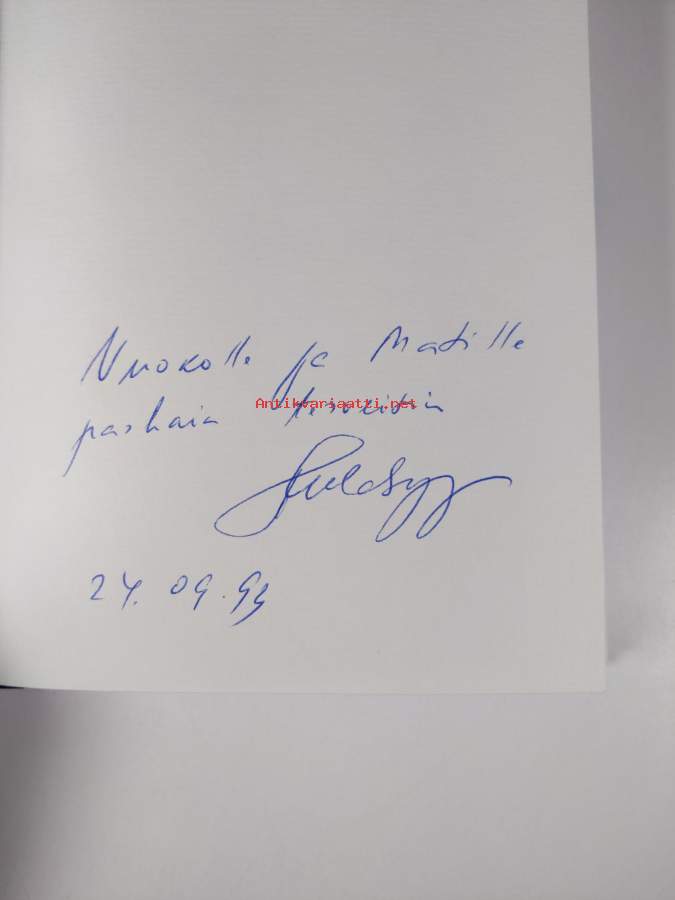 Nuokolle ja Matille
parhain terveisin
Antikvariaatti.net
24.09.93